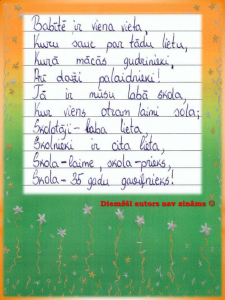 Babītē ir viena vieta,
Kuru sauc par tādu lietu,
Kurā mācās gudrinieki,
Arī daži palaidnieki!
Tā ir mūsu labā skola,
Kur viens otram laimi sola;
Skolotāji - laba lieta,
Skolnieki ir cita lieta,
Skola - laime, skola - prieks,
Skola - 35 gadu gavilnieks!
Diemžēl autors nav zināms ☺